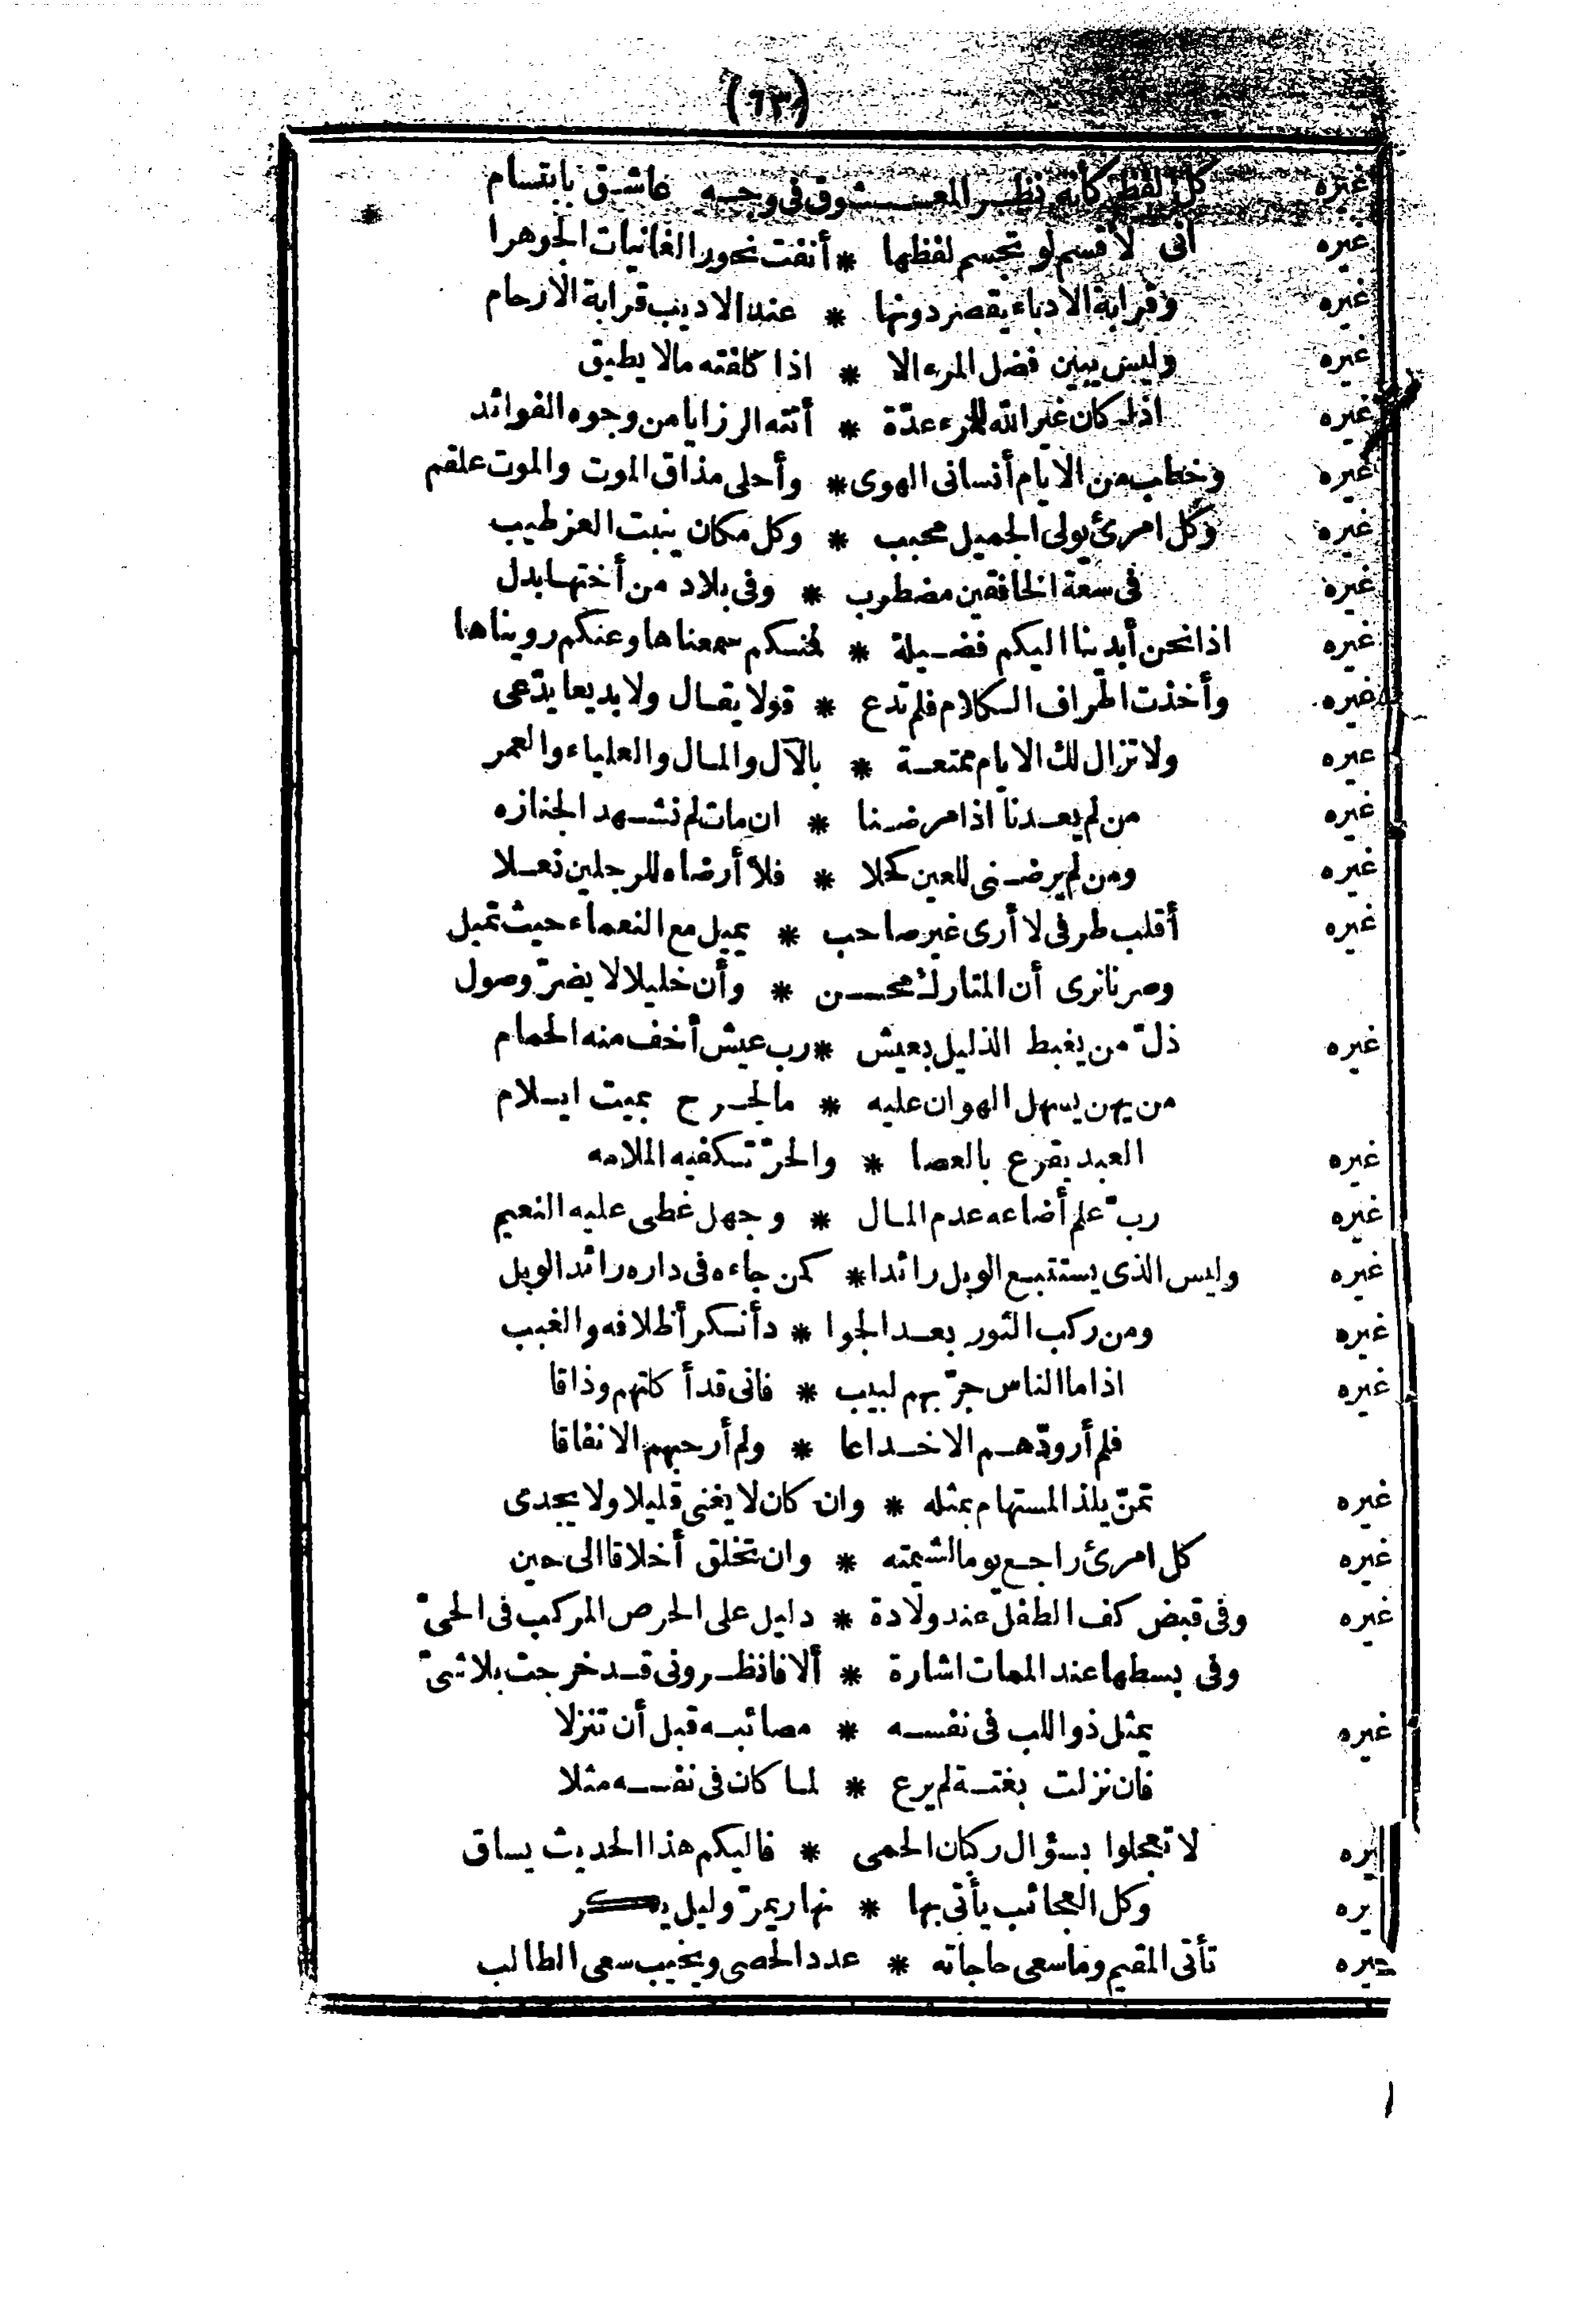 (٦٣)
غيره كل لفظ كأنه نظر المعشوق فى وجه عاشق بابتسام
غيره انى لأقسم لو تجسم لفظها * أنفت نحور الغانيات الجوهرا
غيره وقرابة الادباء يقصر دونها * عند الاديب قرابة الارحام
غيره وليس يبين فضل المرء الا * اذا كلفته مالا يطيق
غيره اذا كان غير الله للمرء عدّة * أتته الرزايا من وجوه الفوائد
غيره وخطب من الايام أنسانى الهوى * وأحلى مذاق الموت والموت علقم
غيره وكل امرئ يولى الجميل محبب * وكل مكان ينبت العز طيب
غيره فى سعة الخافقين مضطرب * وفى بلاد من أختها بدل
غيره اذا نحن أبدينا اليكم فضيلة * فمنكم سمعناها وعنكم رويناها
غيره وأخذت اطراف الكلام فلم تدع * قولا يقال ولا بديعا يدّعى
غيره ولا تزال لك الايام ممتعة * بالآل والمال والعلياء والعمر
غيره من لم يعدنا اذا مرضنا * ان مات لم نشهد الجنازه
غيره ومن لم يرضنى للعين كحلا * فلا أرضاه للرجلين نعلا
غيره أقلب طرفى لا أرى غير صاحب * يميل مع النعماء حيث تميل
وصرنا نرى أن المتارك محسن * وأن خليلا لا يضرّ وصول
غيره ذلّ من يغبط الذليل بعيش * رب عيش أخف منه الحمام
من يهن يسهل الهوان عليه * ما لجرح بميت ايلام
غيره العبد يقرع بالعصا * والحرّ تكفيه الملامه
غيره ربّ علم أضاعه عدم المال * وجهل غطى عليه النعيم
غيره وليس الذى يستتبع الوبل رائدا * كمن جاءه فى داره رائد الوبل
غيره ومن ركب الثور بعد الجوا * د أنكر أظلافه والغبب
غيره اذا ما الناس جرّبهم لبيب * فانى قد أكلتهم وذاقا
فلم أر ودّهم الا خداعا * ولم أر حبهم الا نفاقا
غيره تمنّ يلذ المستهام بمثله * وان كان لا يغنى قليلا ولا يجدى
غيره كل امرئ راجع يوما لشيمته * وان تخلق أخلاقا الى حين
غيره وفى قبض كف الطفل عند ولادة * دليل على الحرص المركب فى الحىّ
وفى بسطها عند الممات اشارة * ألا فانظرونى قد خرجت بلا شىّ
غيره يمثل ذو اللب فى نفسه * مصائبه قبل أن تنزلا
فان نزلت بغتة لم يرع * لما كان فى نفسه مثلا
يره لا تعجلوا بسؤال ركبان الحمى * فاليكم هذا الحديث يساق
يره وكل العجائب يأتى بها * نهار يمرّ وليل يكر
غيره تأتى المقيم وما سعى حاجاته * عدد الحصى ويخيب سعى الطالب